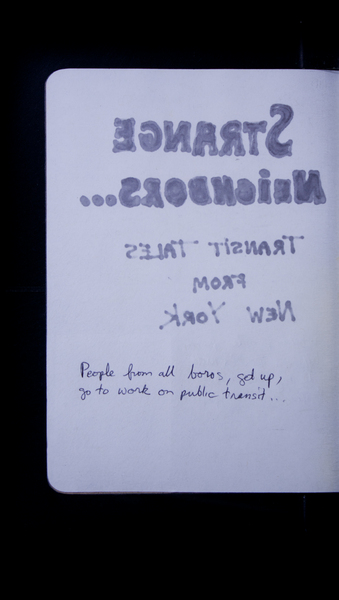 STRANGE
NEIGHBORS...
TRANSIT TALES
FROM
NEW YORK.
People from all boros, get up,
go to work on public transit...